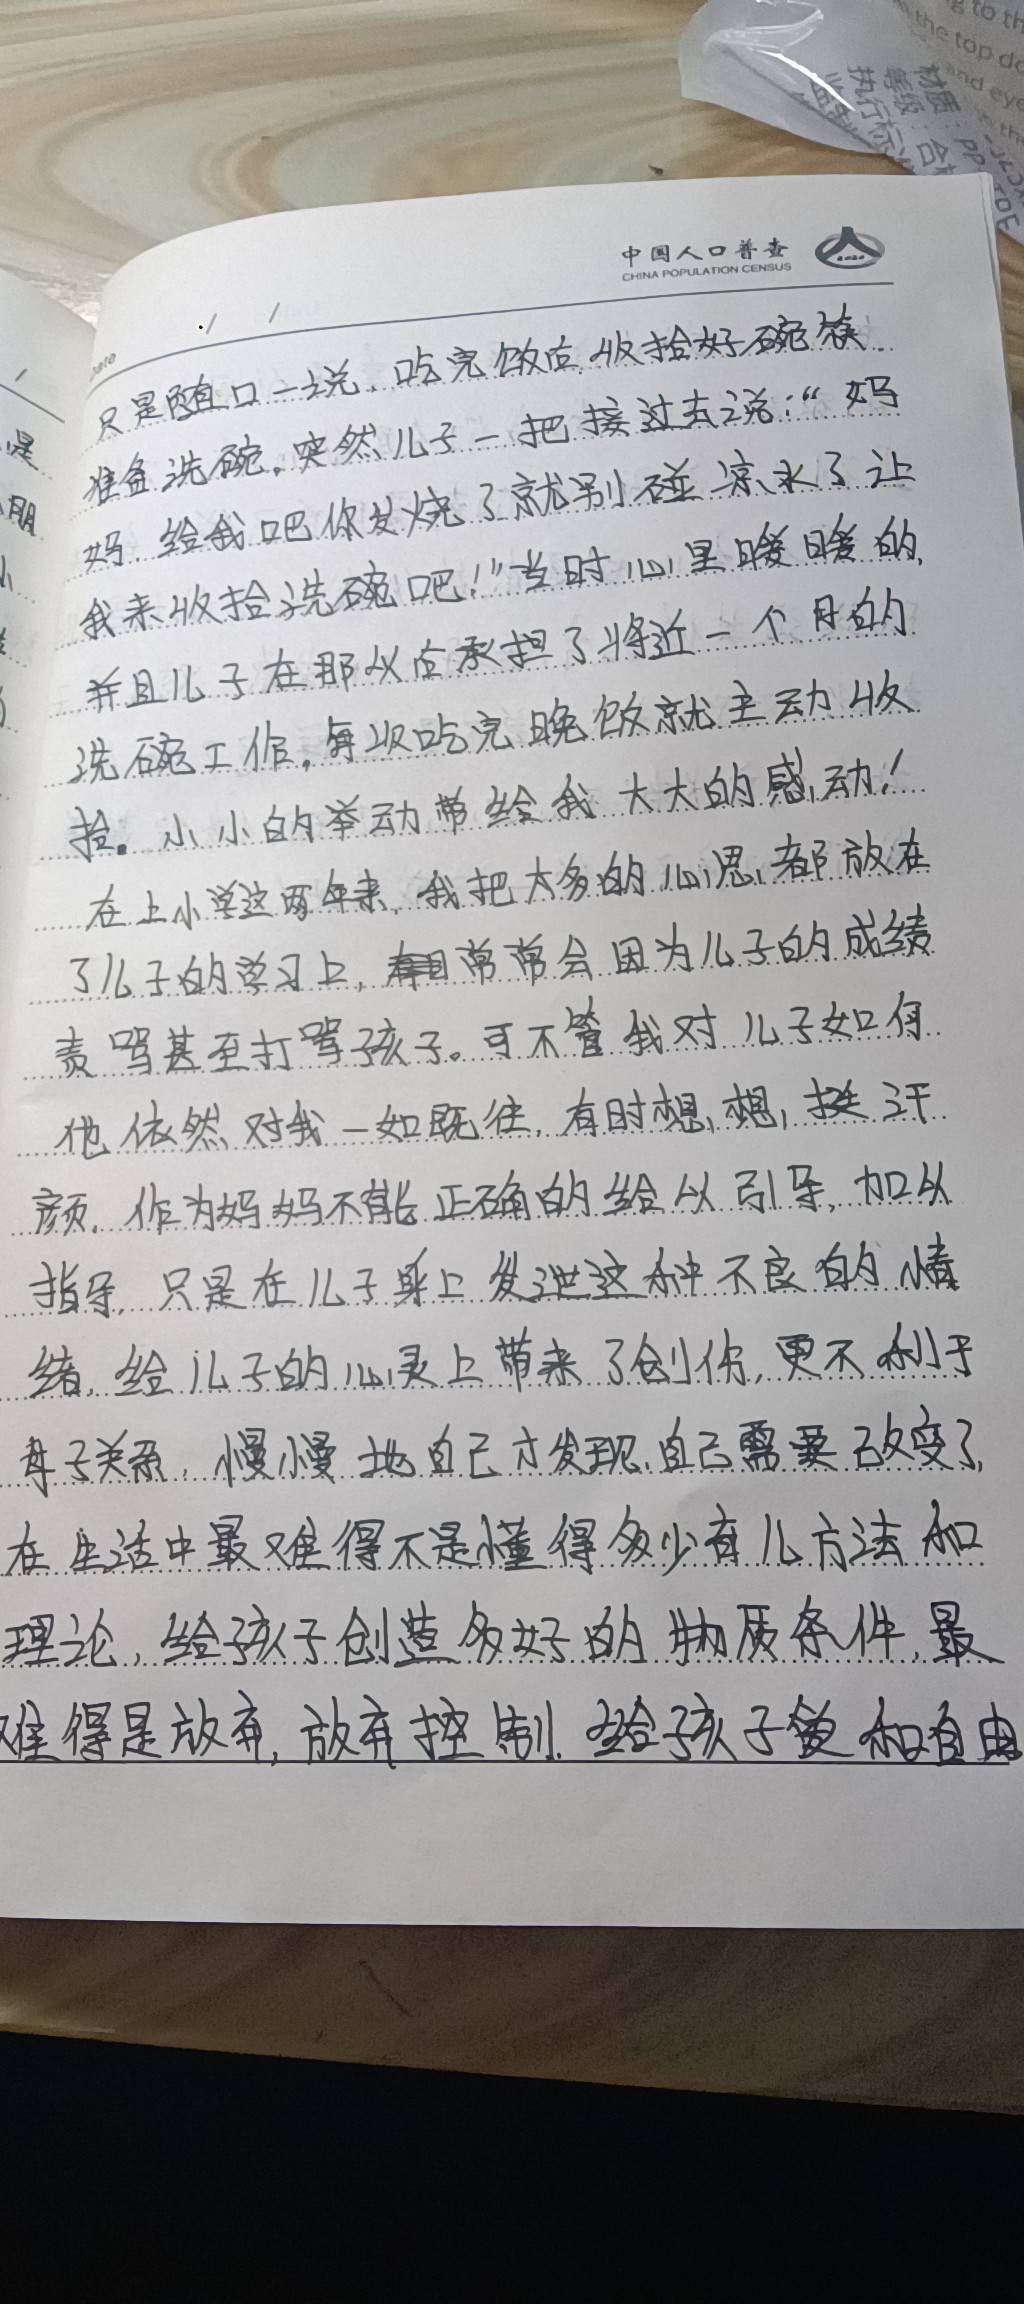 g to th
the top do
and eye
材质：PP
等级：合
执行标准
中国人口普查
CHINA POPULATION CENSUS
只是随口一说，吃完饭后收拾好碗筷
准备洗碗。突然儿子一把接过去说：“妈
妈，给我吧你发烧了就别碰凉水了让
我来收拾洗碗吧！”当时心里暖暖的，
并且儿子在那以后承担了将近一个月的
洗碗工作，每次吃完晚饭就主动收
拾。小小的举动带给我大大的感动！
在上小学这两年来，我把大多的心思都放在
了儿子的学习上，常常会因为儿子的成绩
责骂甚至打骂孩子。可不管我对儿子如何
他依然对我一如既往，有时想想，挺汗
颜，作为妈妈不能正确的给以引导，加以
指导，只是在儿子身上发泄这种不良的情
绪，给儿子的心灵上带来了创伤，更不利于
母子关系，慢慢地自己才发现自己需要改变了，
在生活中最难得不是懂得多少育儿方法和
理论，给孩子创造多好的物质条件，最
难得是放弃，放弃控制，给孩子爱和自由
是
朋
小